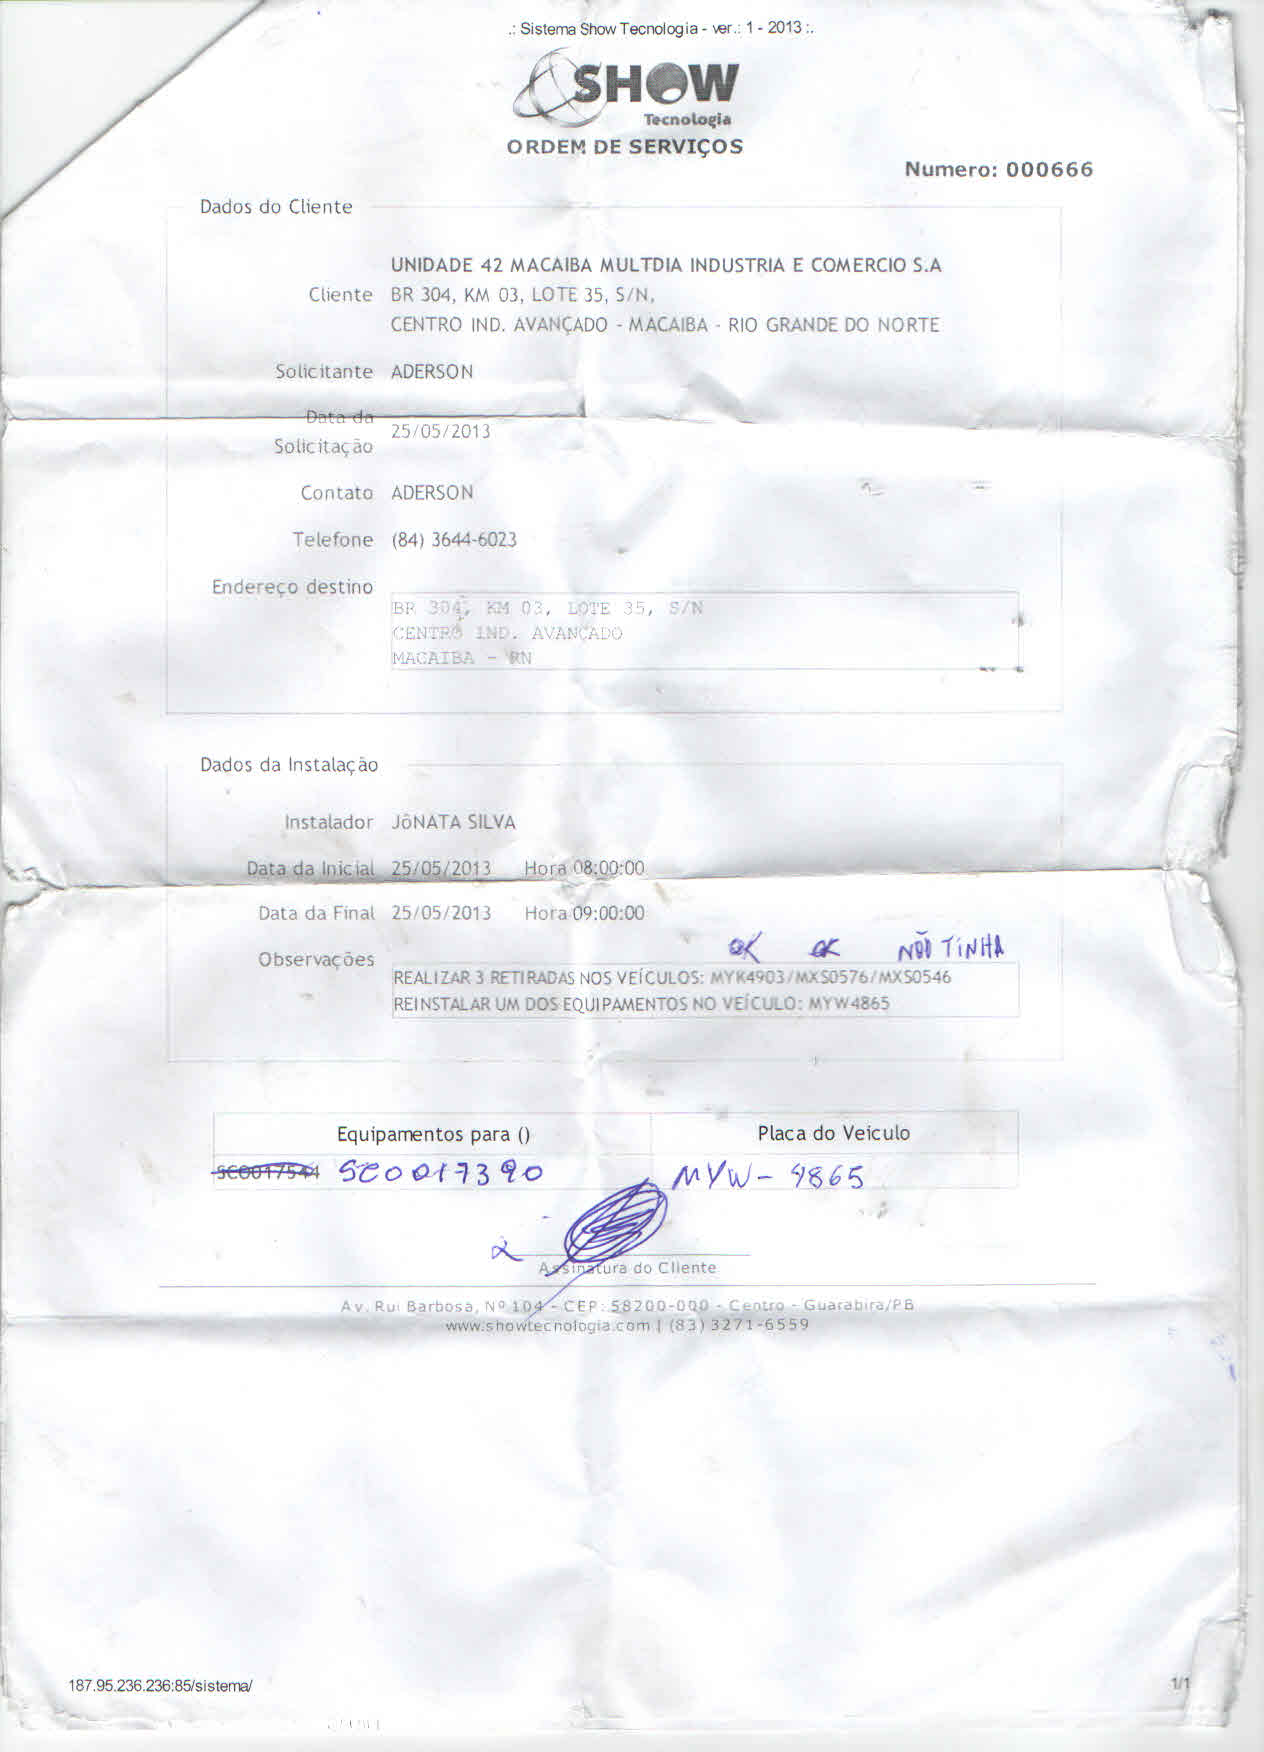 .: Sistema Show Tecnologia - ver.: 1 - 2013 :.
SHOW
Tecnologia
ORDEM DE SERVIÇOS
Numero: 000666
Dados do Cliente
UNIDADE 42 MACAIBA MULTDIA INDUSTRIA E COMERCIO S.A
Cliente BR 304, KM 03, LOTE 35, S/N,
CENTRO IND. AVANÇADO - MACAIBA - RIO GRANDE DO NORTE
Solicitante ADERSON
Data da
Solicitação 25/05/2013
Contato ADERSON
Telefone (84) 3644-6023
Endereço destino
BR 304, KM 03, LOTE 35, S/N
CENTRO IND. AVANÇADO
MACAIBA - RN
Dados da Instalação
Instalador JôNATA SILVA
Data da Inicial 25/05/2013 Hora 08:00:00
Data da Final 25/05/2013 Hora 09:00:00
OK OK NÃO TINHA
Observações
REALIZAR 3 RETIRADAS NOS VEÍCULOS: MYK4903/MXS0576/MXS0546
REINSTALAR UM DOS EQUIPAMENTOS NO VEÍCULO: MYW4865
Equipamentos para () Placa do Veiculo
SC0017544 SC0017390 MYW-4865
Assinatura do Cliente
Av. Rui Barbosa, Nº 104 - CEP: 58200-000 - Centro - Guarabira/PB
www.showtecnologia.com | (83) 3271-6559
187.95.236.236:85/sistema/ 1/1